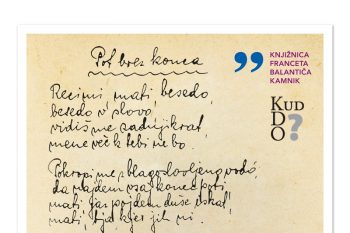 Pot brez konca
Recimi, mati, besedo,
besedo v slovo,
vidiš me zadnjikrat,
mene več k tebi ne bo.
Pokropi me z blagoslovljeno vodó,
da najdem vsaj konec poti,
mati, jaz pojdem duše iskat,
mati, tja kjer jih ni.
KNJIŽNICA
FRANCETA
BALANTIČA
KAMNIK
KUD
DO?